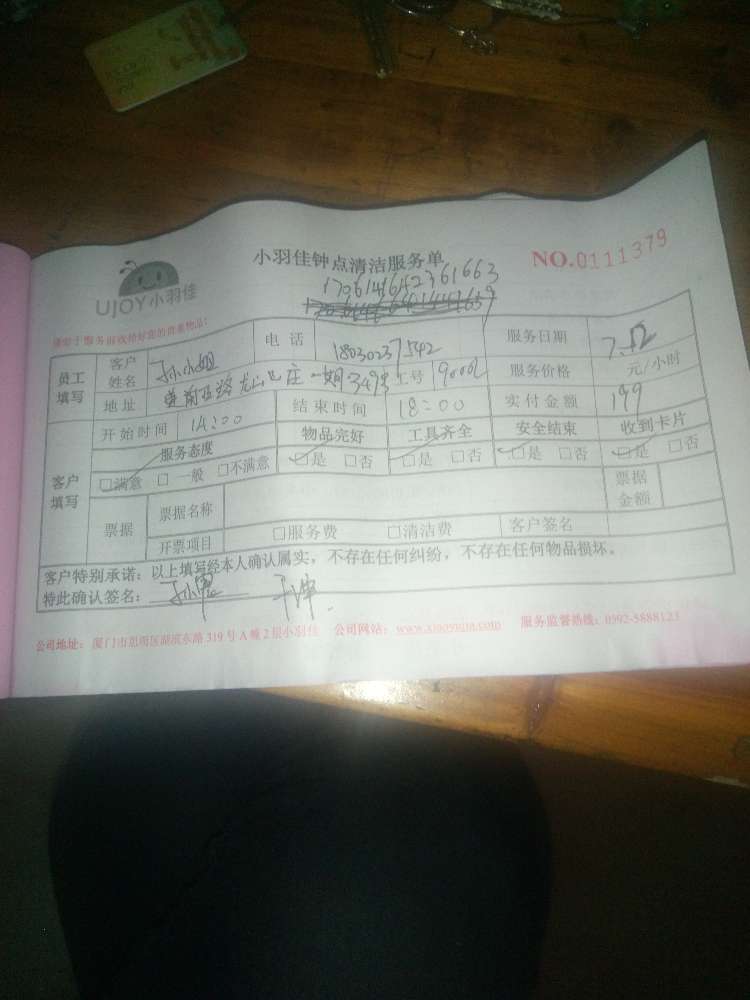 小羽佳钟点清洁服务单
NO.0111379
UJOY小羽佳
1706146152361663
请您于服务前收拾好您的贵重物品：
员工填写 客户姓名 孙小姐 电话 18030237542 服务日期
地址 山庄一期349 工号 服务价格 元/小时
客户填写 开始时间 14:00 结束时间 18:00 实付金额 199
服务态度 物品完好 工具齐全 安全结束 收到卡片
□满意 □一般 □不满意 □是 □否 □是 □否 □是 □否 □是 □否
票据 票据名称 票据金额
开票项目 □服务费 □清洁费 客户签名
客户特别承诺：以上填写经本人确认属实，不存在任何纠纷，不存在任何物品损坏。
特此确认签名：
公司地址：厦门市思明区湖滨东路319号A幢2层小羽佳 公司网站：www.xiaoyujia.com 服务监督热线：0592-5888123